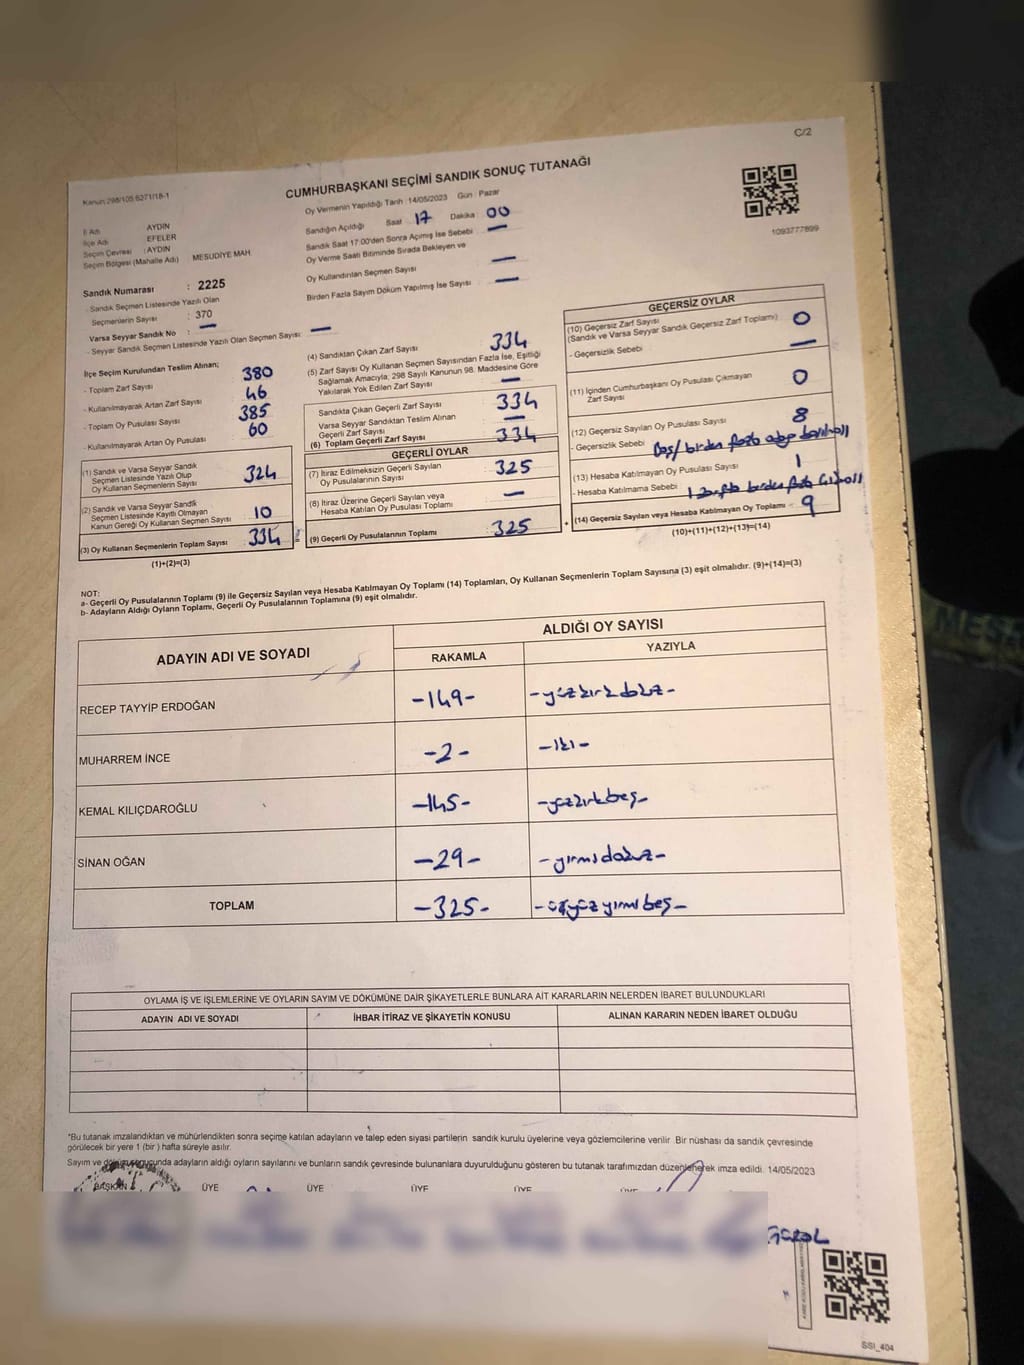 C/2
Kanun:298/105;6271/18-1
CUMHURBAŞKANI SEÇİMİ SANDIK SONUÇ TUTANAĞI
1093777899
İl Adı AYDIN
İlçe Adı EFELER
Seçim Çevresi : AYDIN
Seçim Bölgesi (Mahalle Adı) MESUDİYE MAH.
Sandık Numarası : 2225
- Sandık Seçmen Listesinde Yazılı Olan
Seçmenlerin Sayısı : 370
Varsa Seyyar Sandık No : —
- Seyyar Sandık Seçmen Listesinde Yazılı Olan Seçmen Sayısı: —
Oy Vermenin Yapıldığı Tarih :14/05/2023 Gün : Pazar
Sandığın Açıldığı Saat : 17 Dakika : 00
Sandık Saat 17:00'den Sonra Açılmış İse Sebebi —
Oy Verme Saati Bitiminde Sırada Bekleyen ve
Oy Kullandırılan Seçmen Sayısı —
Birden Fazla Sayım Döküm Yapılmış İse Sayısı : —
İlçe Seçim Kurulundan Teslim Alınan;
- Toplam Zarf Sayısı 380
- Kullanılmayarak Artan Zarf Sayısı 46
- Toplam Oy Pusulası Sayısı 385
- Kullanılmayarak Artan Oy Pusulası 60
(1) Sandık ve Varsa Seyyar Sandık
Seçmen Listesinde Yazılı Olup
Oy Kullanan Seçmenlerin Sayısı 324
(2) Sandık ve Varsa Seyyar Sandık
Seçmen Listesinde Kayıtlı Olmayan
Kanun Gereği Oy Kullanan Seçmen Sayısı 10
(3) Oy Kullanan Seçmenlerin Toplam Sayısı 334
(1)+(2)=(3)
(4) Sandıktan Çıkan Zarf Sayısı 334
(5) Zarf Sayısı Oy Kullanan Seçmen Sayısından Fazla İse, Eşitliği
Sağlamak Amacıyla, 298 Sayılı Kanunun 98. Maddesine Göre
Yakılarak Yok Edilen Zarf Sayısı —
Sandıkta Çıkan Geçerli Zarf Sayısı 334
Varsa Seyyar Sandıktan Teslim Alınan
Geçerli Zarf Sayısı —
(6) Toplam Geçerli Zarf Sayısı 334
GEÇERLİ OYLAR
(7) İtiraz Edilmeksizin Geçerli Sayılan
Oy Pusulalarının Sayısı 325
(8) İtiraz Üzerine Geçerli Sayılan veya
Hesaba Katılan Oy Pusulası Toplamı —
(9) Geçerli Oy Pusulalarının Toplamı 325
GEÇERSİZ OYLAR
(10) Geçersiz Zarf Sayısı
(Sandık ve Varsa Seyyar Sandık Geçersiz Zarf Toplamı) 0
- Geçersizlik Sebebi —
(11) İçinden Cumhurbaşkanı Oy Pusulası Çıkmayan
Zarf Sayısı 0
(12) Geçersiz Sayılan Oy Pusulası Sayısı 8
- Geçersizlik Sebebi Boş/birden fazla
(13) Hesaba Katılmayan Oy Pusulası Sayısı 1
- Hesaba Katılmama Sebebi 1 zarfta birden fazla
(14) Geçersiz Sayılan veya Hesaba Katılmayan Oy Toplamı 9
(10)+(11)+(12)+(13)=(14)
NOT:
a- Geçerli Oy Pusulalarının Toplamı (9) ile Geçersiz Sayılan veya Hesaba Katılmayan Oy Toplamı (14) Toplamları, Oy Kullanan Seçmenlerin Toplam Sayısına (3) eşit olmalıdır. (9)+(14)=(3)
b- Adayların Aldığı Oyların Toplamı, Geçerli Oy Pusulalarının Toplamına (9) eşit olmalıdır.
ADAYIN ADI VE SOYADI ALDIĞI OY SAYISI
RAKAMLA YAZIYLA
RECEP TAYYİP ERDOĞAN -149- -yüzkırkdokuz-
MUHARREM İNCE -2- -iki-
KEMAL KILIÇDAROĞLU -145- -yüzkırkbeş-
SİNAN OĞAN -29- -yirmidokuz-
TOPLAM -325- -üçyüzyirmibeş-
OYLAMA İŞ VE İŞLEMLERİNE VE OYLARIN SAYIM VE DÖKÜMÜNE DAİR ŞİKAYETLERLE BUNLARA AİT KARARLARIN NELERDEN İBARET BULUNDUKLARI
ADAYIN ADI VE SOYADI İHBAR İTİRAZ VE ŞİKAYETİN KONUSU ALINAN KARARIN NEDEN İBARET OLDUĞU
*Bu tutanak imzalandıktan ve mühürlendikten sonra seçime katılan adayların ve talep eden siyasi partilerin sandık kurulu üyelerine veya gözlemcilerine verilir. Bir nüshası da sandık çevresinde
görülecek bir yere 1 (bir) hafta süreyle asılır.
Sayım ve dökümü sonucunda adayların aldığı oyların sayılarını ve bunların sandık çevresinde bulunanlara duyurulduğunu gösteren bu tutanak tarafımızdan düzenlenerek imza edildi. 14/05/2023
BAŞKAN ÜYE ÜYE ÜYE ÜYE ÜYE
SSI_404